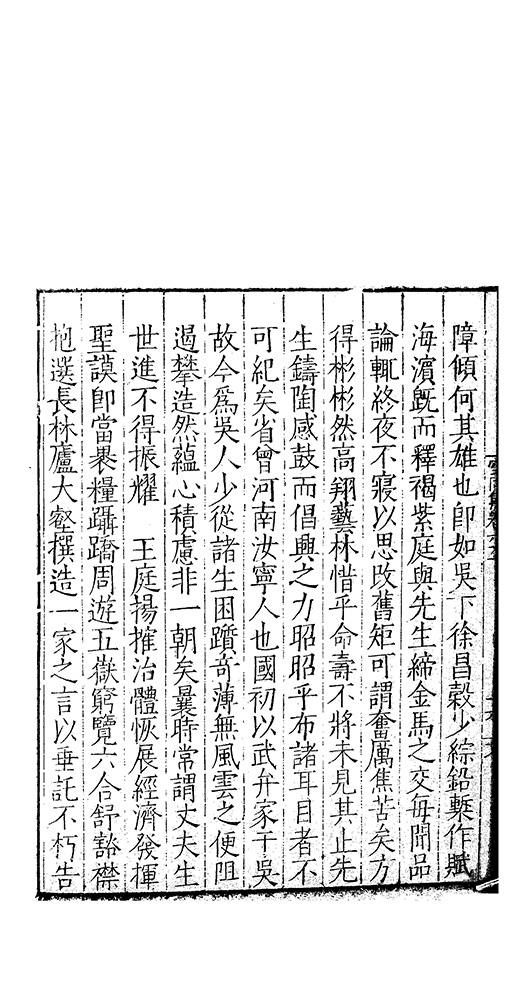 障傾何其雄也即如吳下徐昌穀少綜鉛槧作賦
海濱既而釋褐紫庭與先生締金馬之交每聞品
論輒終夜不寢以思改舊矩可謂奮厲焦苦矣方
得彬彬然高翔藝林惜乎命壽不將未見其止先
生鑄陶感鼓而倡興之力昭昭乎布諸耳目者不
可紀矣省曾河南汝寧人也國初以武弁家于吳
故今爲吳人少從諸生困躓奇薄無風雲之便阻
遏攀造然蘊心積慮非一朝矣曩時常謂丈夫生
世進不得振耀　王庭揚搉治體恢展經濟發揮
聖謨即當褁糧躡蹻周遊五嶽窮覽六合舒豁襟
抱選長林廬大壑撰造一家之言以垂託不朽告